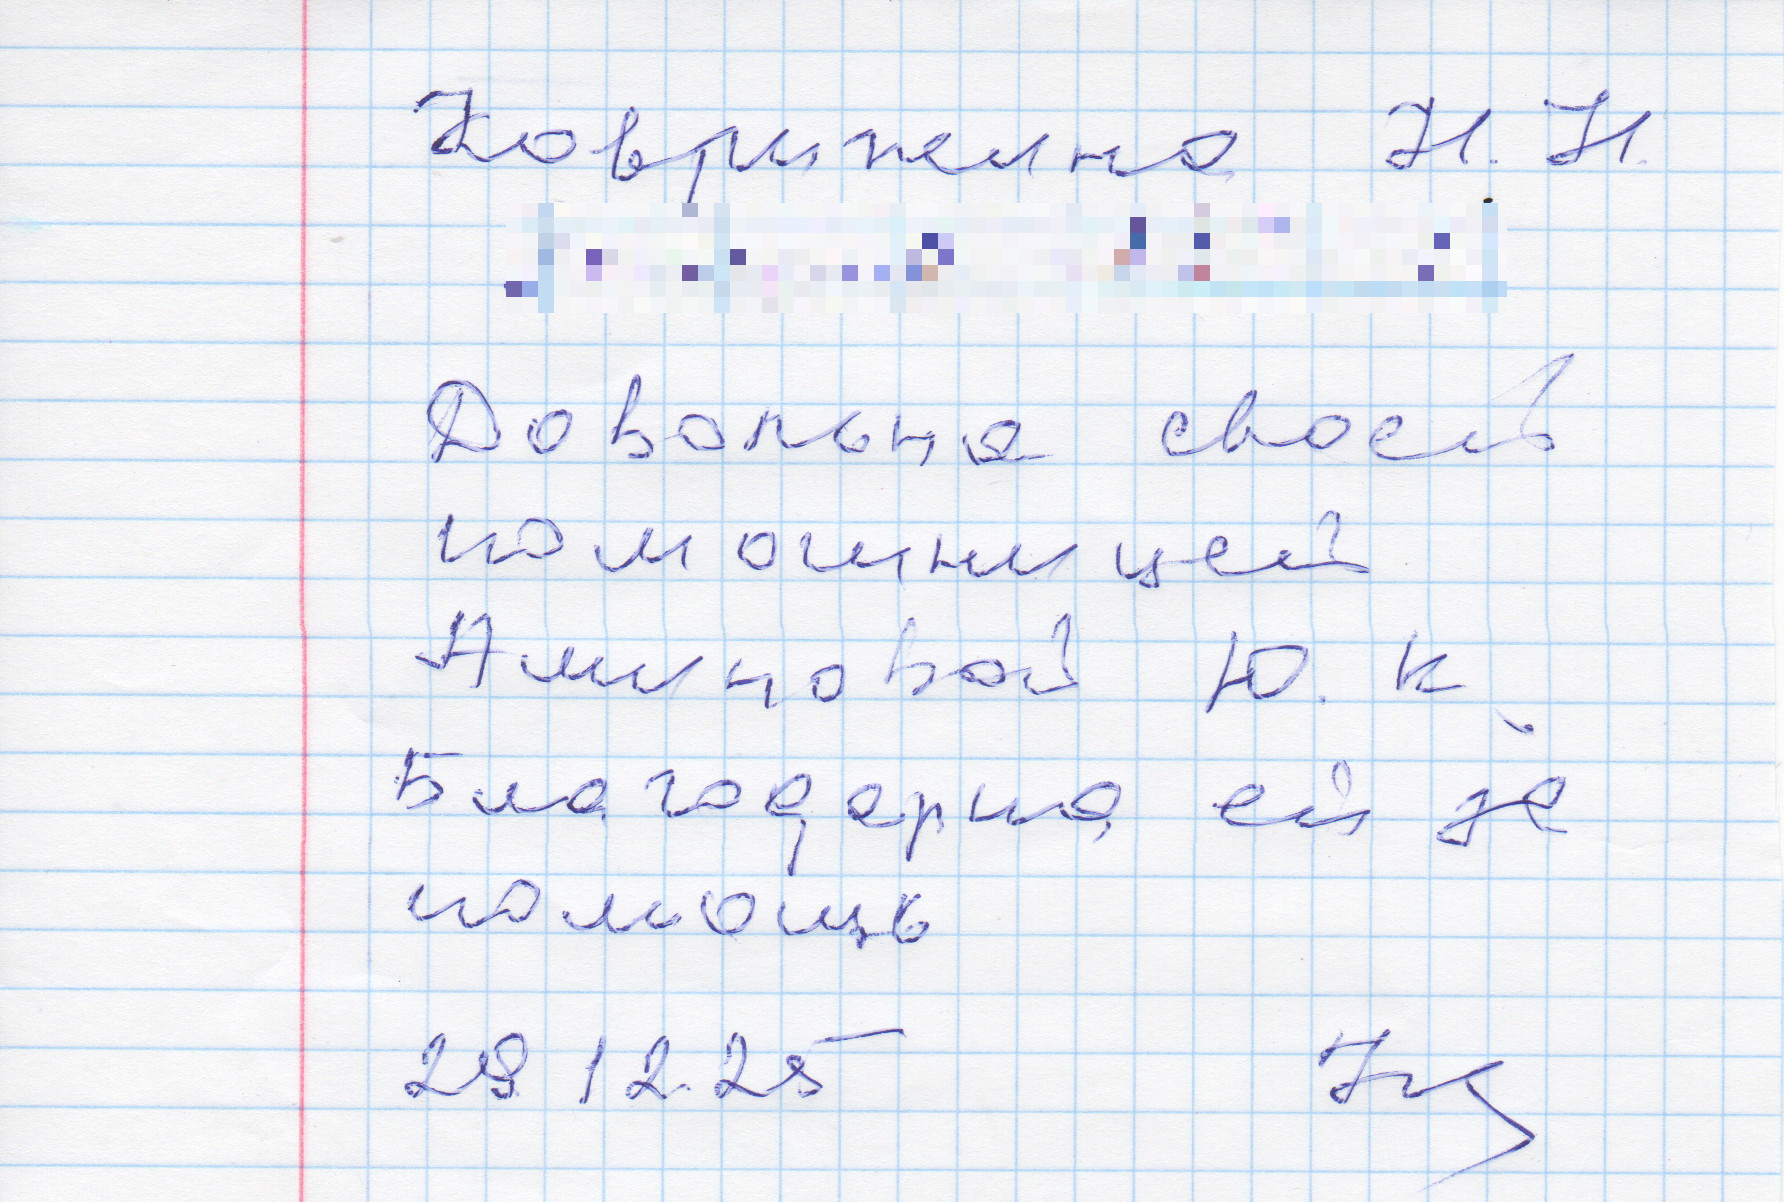 Коврижина Н. Н.
Довольна своей
помощницей
Аминовой Ю. К.
Благодарна ей за
помощь
29 12.25